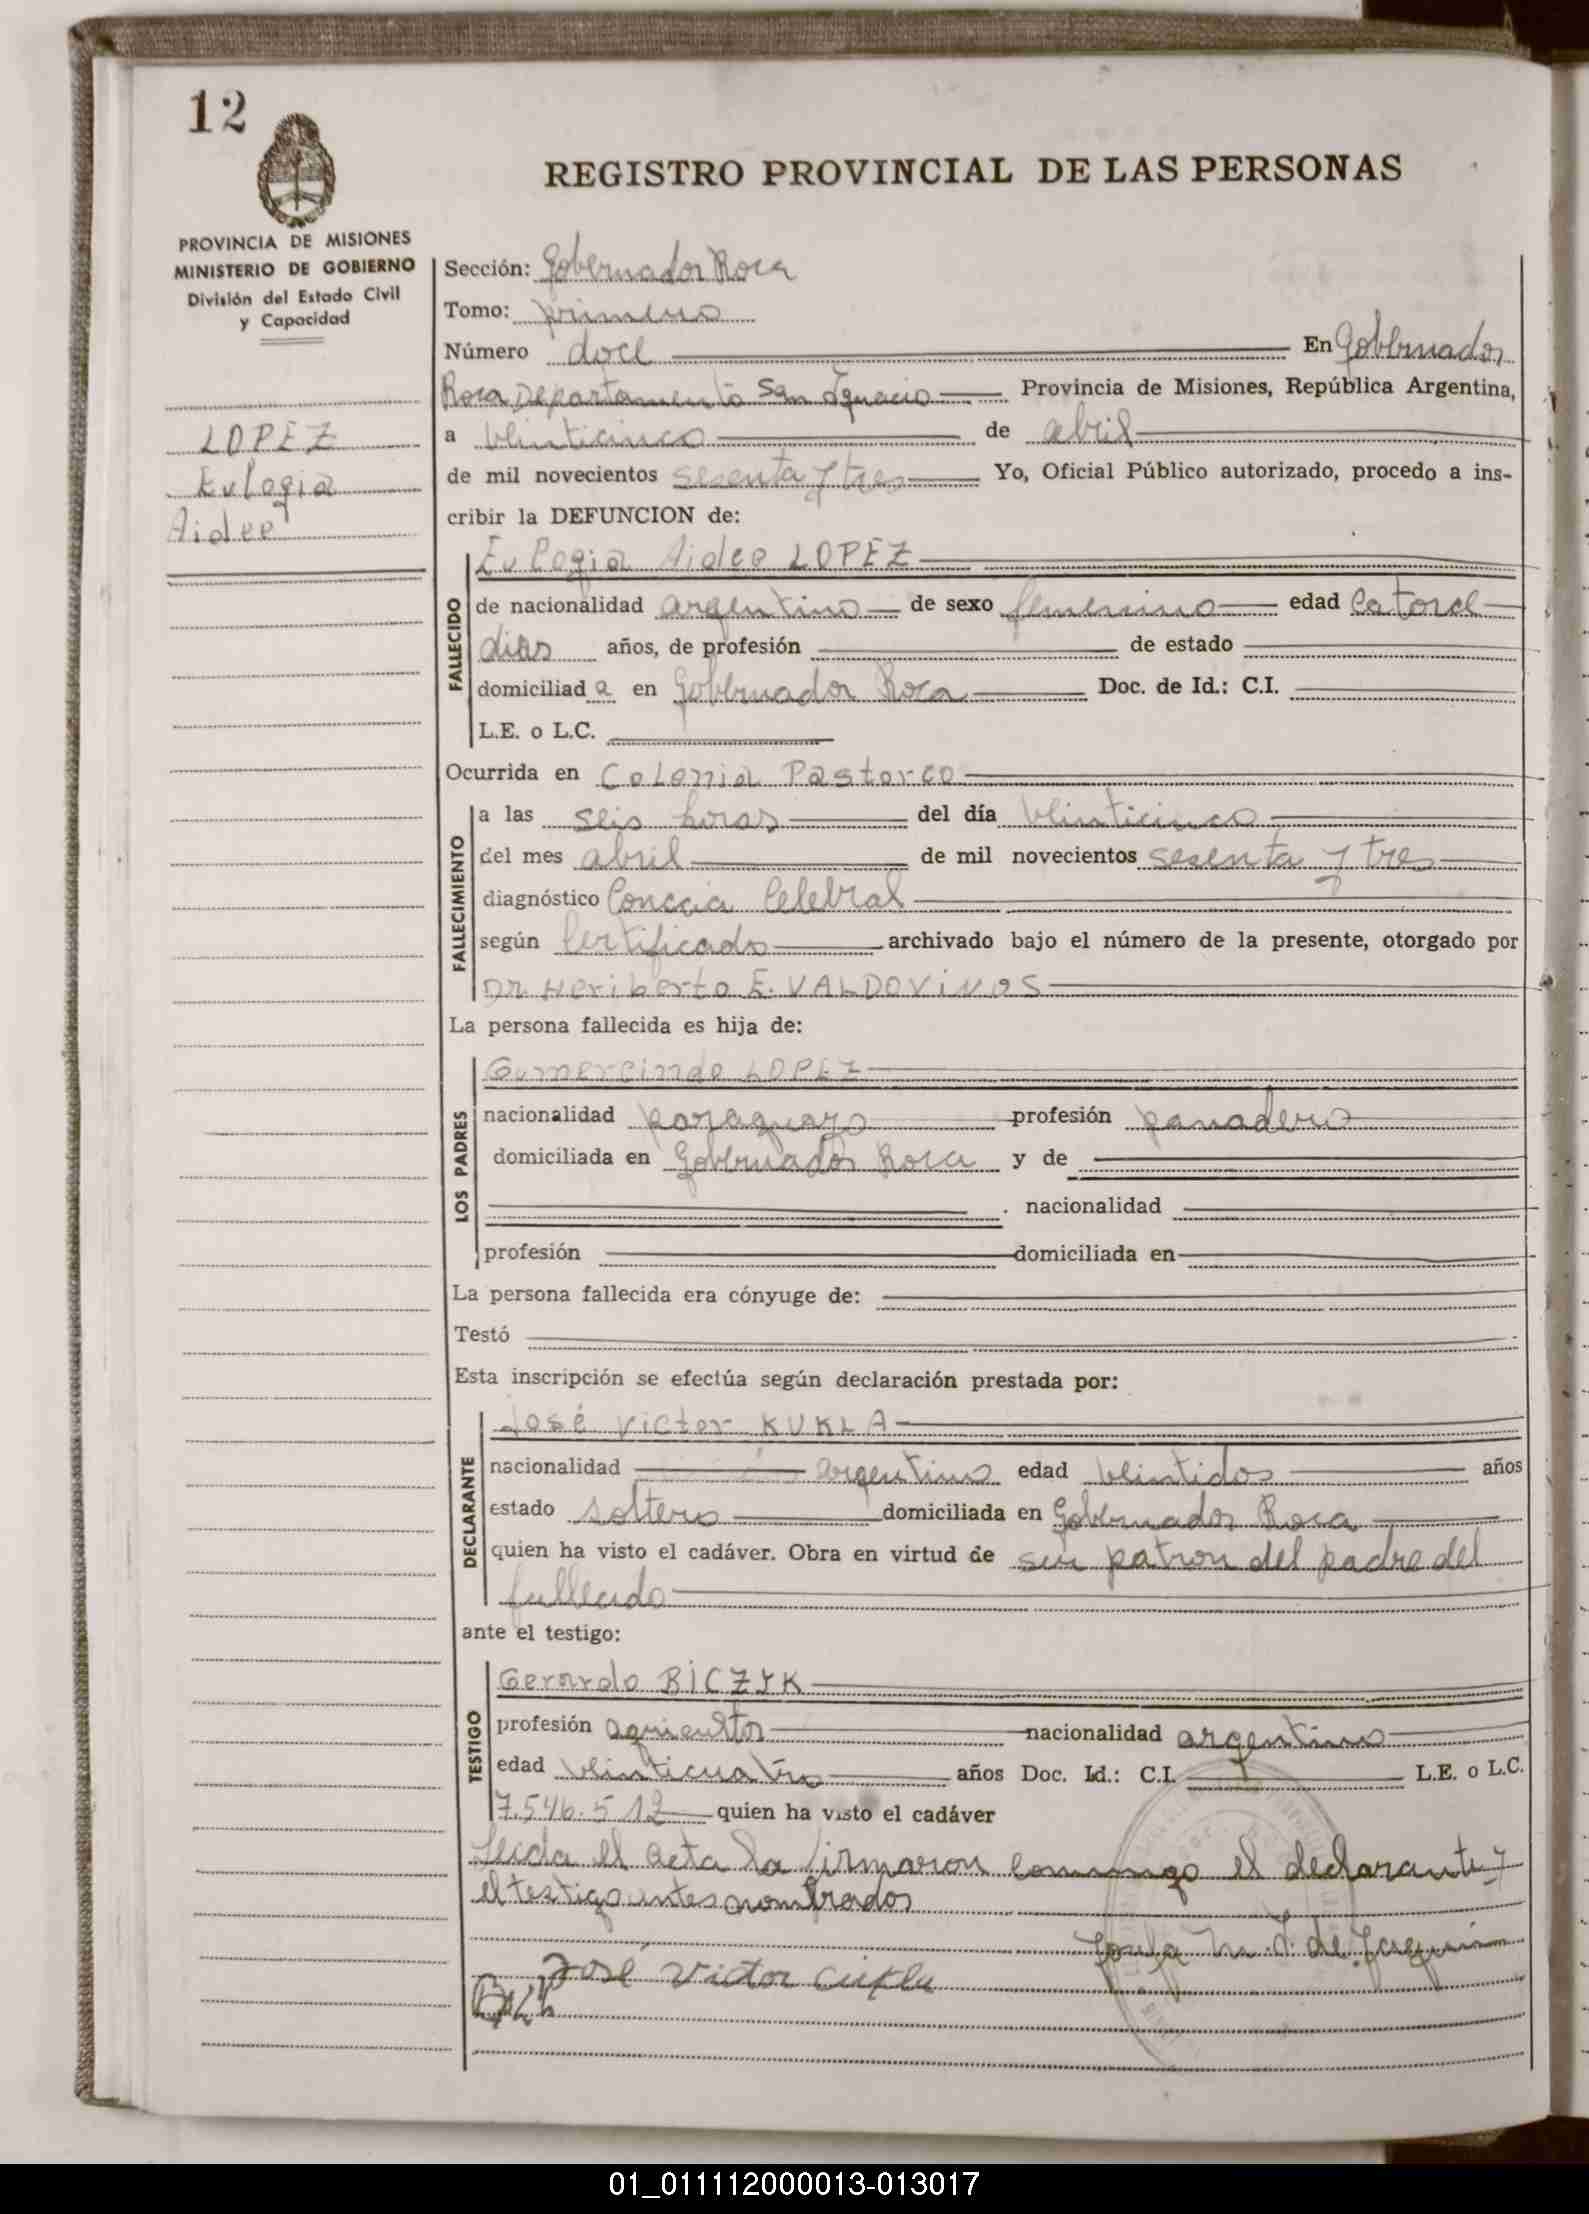 12
REGISTRO PROVINCIAL DE LAS PERSONAS
PROVINCIA DE MISIONES
MINISTERIO DE GOBIERNO
División del Estado Civil
y Capacidad
LOPEZ
Eulogia
Aidee
Sección: Gobernador Roca
Tomo: primero
Número doce En Gobernador
Roca Departamento San Ignacio Provincia de Misiones, República Argentina,
a veinticinco de abril
de mil novecientos sesenta y tres Yo, Oficial Público autorizado, procedo a ins-
cribir la DEFUNCION de:
FALLECIDO
Eulogia Aidee LOPEZ
de nacionalidad argentino de sexo femenino edad catorce
dias años, de profesión de estado
domiciliad a en Gobernador Roca Doc. de Id.: C.I.
L.E. o L.C.
Ocurrida en Colonia Pastoreo
FALLECIMIENTO
a las seis horas del día veinticinco
del mes abril de mil novecientos sesenta y tres
diagnóstico Celebral
según Certificado archivado bajo el número de la presente, otorgado por
Dr Heriberto E. VALDOVINOS
La persona fallecida es hija de:
LOS PADRES
Gumercindo LOPEZ
nacionalidad paraguayo profesión panadero
domiciliada en Gobernador Roca y de
nacionalidad
profesión domiciliada en
La persona fallecida era cónyuge de:
Testó
Esta inscripción se efectúa según declaración prestada por:
DECLARANTE
José Victor KUKLA
nacionalidad argentino edad veintidos años
estado soltero domiciliada en Gobernador Roca
quien ha visto el cadáver. Obra en virtud de ser patron del padre del
fallecido
ante el testigo:
TESTIGO
Gerardo BICZYK
profesión agricultor nacionalidad argentino
edad veinticuatro años Doc. Id.: C.I. L.E. o L.C.
7.546.512 quien ha visto el cadáver
Leida el acta la firmaron conmigo el declarante y
el testigo antes nombrados
José Victor Cukla
01_011112000013-013017